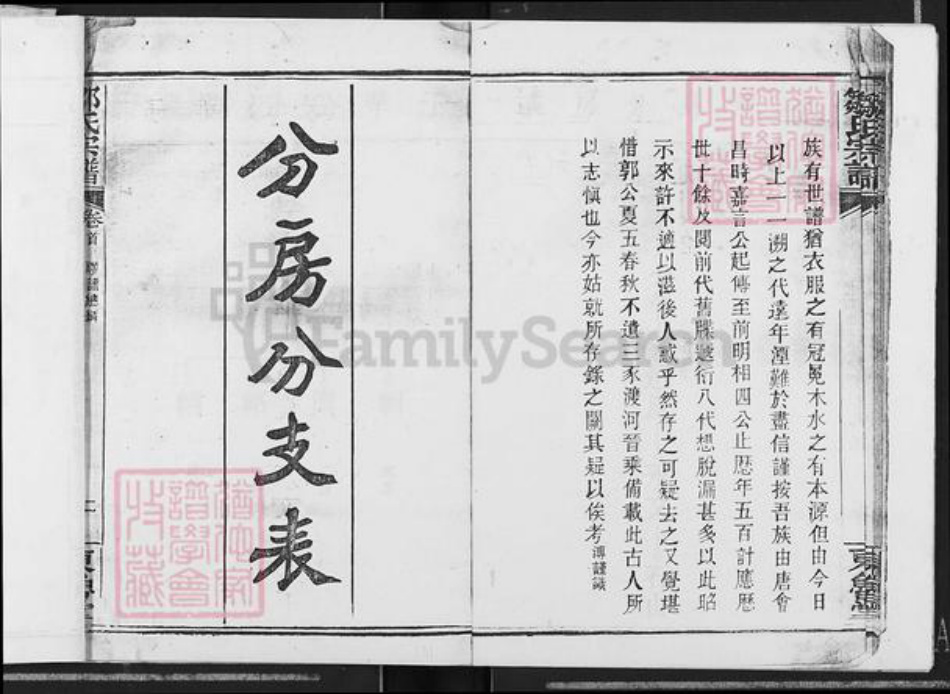 鄒氏宗譜
族有世譜猶衣服之有冠冕木水之有本源但由今日
以上一一溯之代遠年湮難於盡信謹按吾族由唐會
昌時嘉言公起傳至前明相四公止歷年五百計應歷
世十餘及閱前代舊牒遞衍八代想脫漏甚多以此昭
示來許不適以滋後人惑乎然存之可疑去之又覺堪
惜郭公夏五春秋不遺三豕渡河晉乘備載此古人所
以志慎也今亦姑就所存錄之闕其疑以俟考 溥謹識
東魯堂
分房分支表
鄒氏宗譜
卷首
FamilySearch
譜學會
收藏
譜學會
收藏